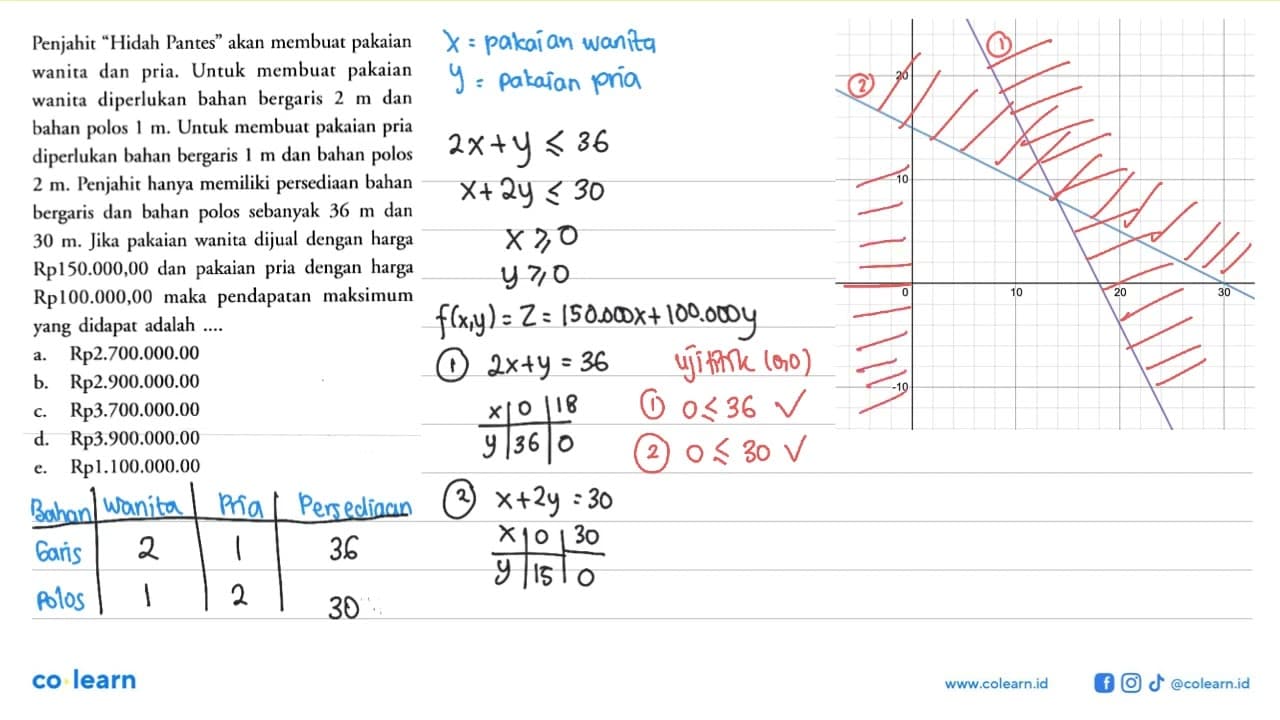 Penjahit “Hidah Pantes” akan membuat pakaian
wanita dan pria. Untuk membuat pakaian
wanita diperlukan bahan bergaris 2 m dan
bahan polos 1 m. Untuk membuat pakaian pria
diperlukan bahan bergaris 1 m dan bahan polos
2 m. Penjahit hanya memiliki persediaan bahan
bergaris dan bahan polos sebanyak 36 m dan
30 m. Jika pakaian wanita dijual dengan harga
Rp150.000,00 dan pakaian pria dengan harga
Rp100.000,00 maka pendapatan maksimum
yang didapat adalah ....
a. Rp2.700.000.00
b. Rp2.900.000.00
c. Rp3.700.000.00
d. Rp3.900.000.00
e. Rp1.100.000.00
Bahan Wanita Pria Persediaan
Garis 2 1 36
Polos 1 2 30
x = pakaian wanita
y = pakaian pria
2x+y ≤ 36
x+2y ≤ 30
x ≥ 0
y ≥ 0
f(x,y) = Z = 150.000x+100.000y
① 2x+y = 36
x 0 18
y 36 0
uji titik (0,0)
① 0 ≤ 36 ✓
② 0 ≤ 30 ✓
② x+2y = 30
x 0 30
y 15 0
①
②
20
10
0 10 20 30
-10
co learn
www.colearn.id
@colearn.id